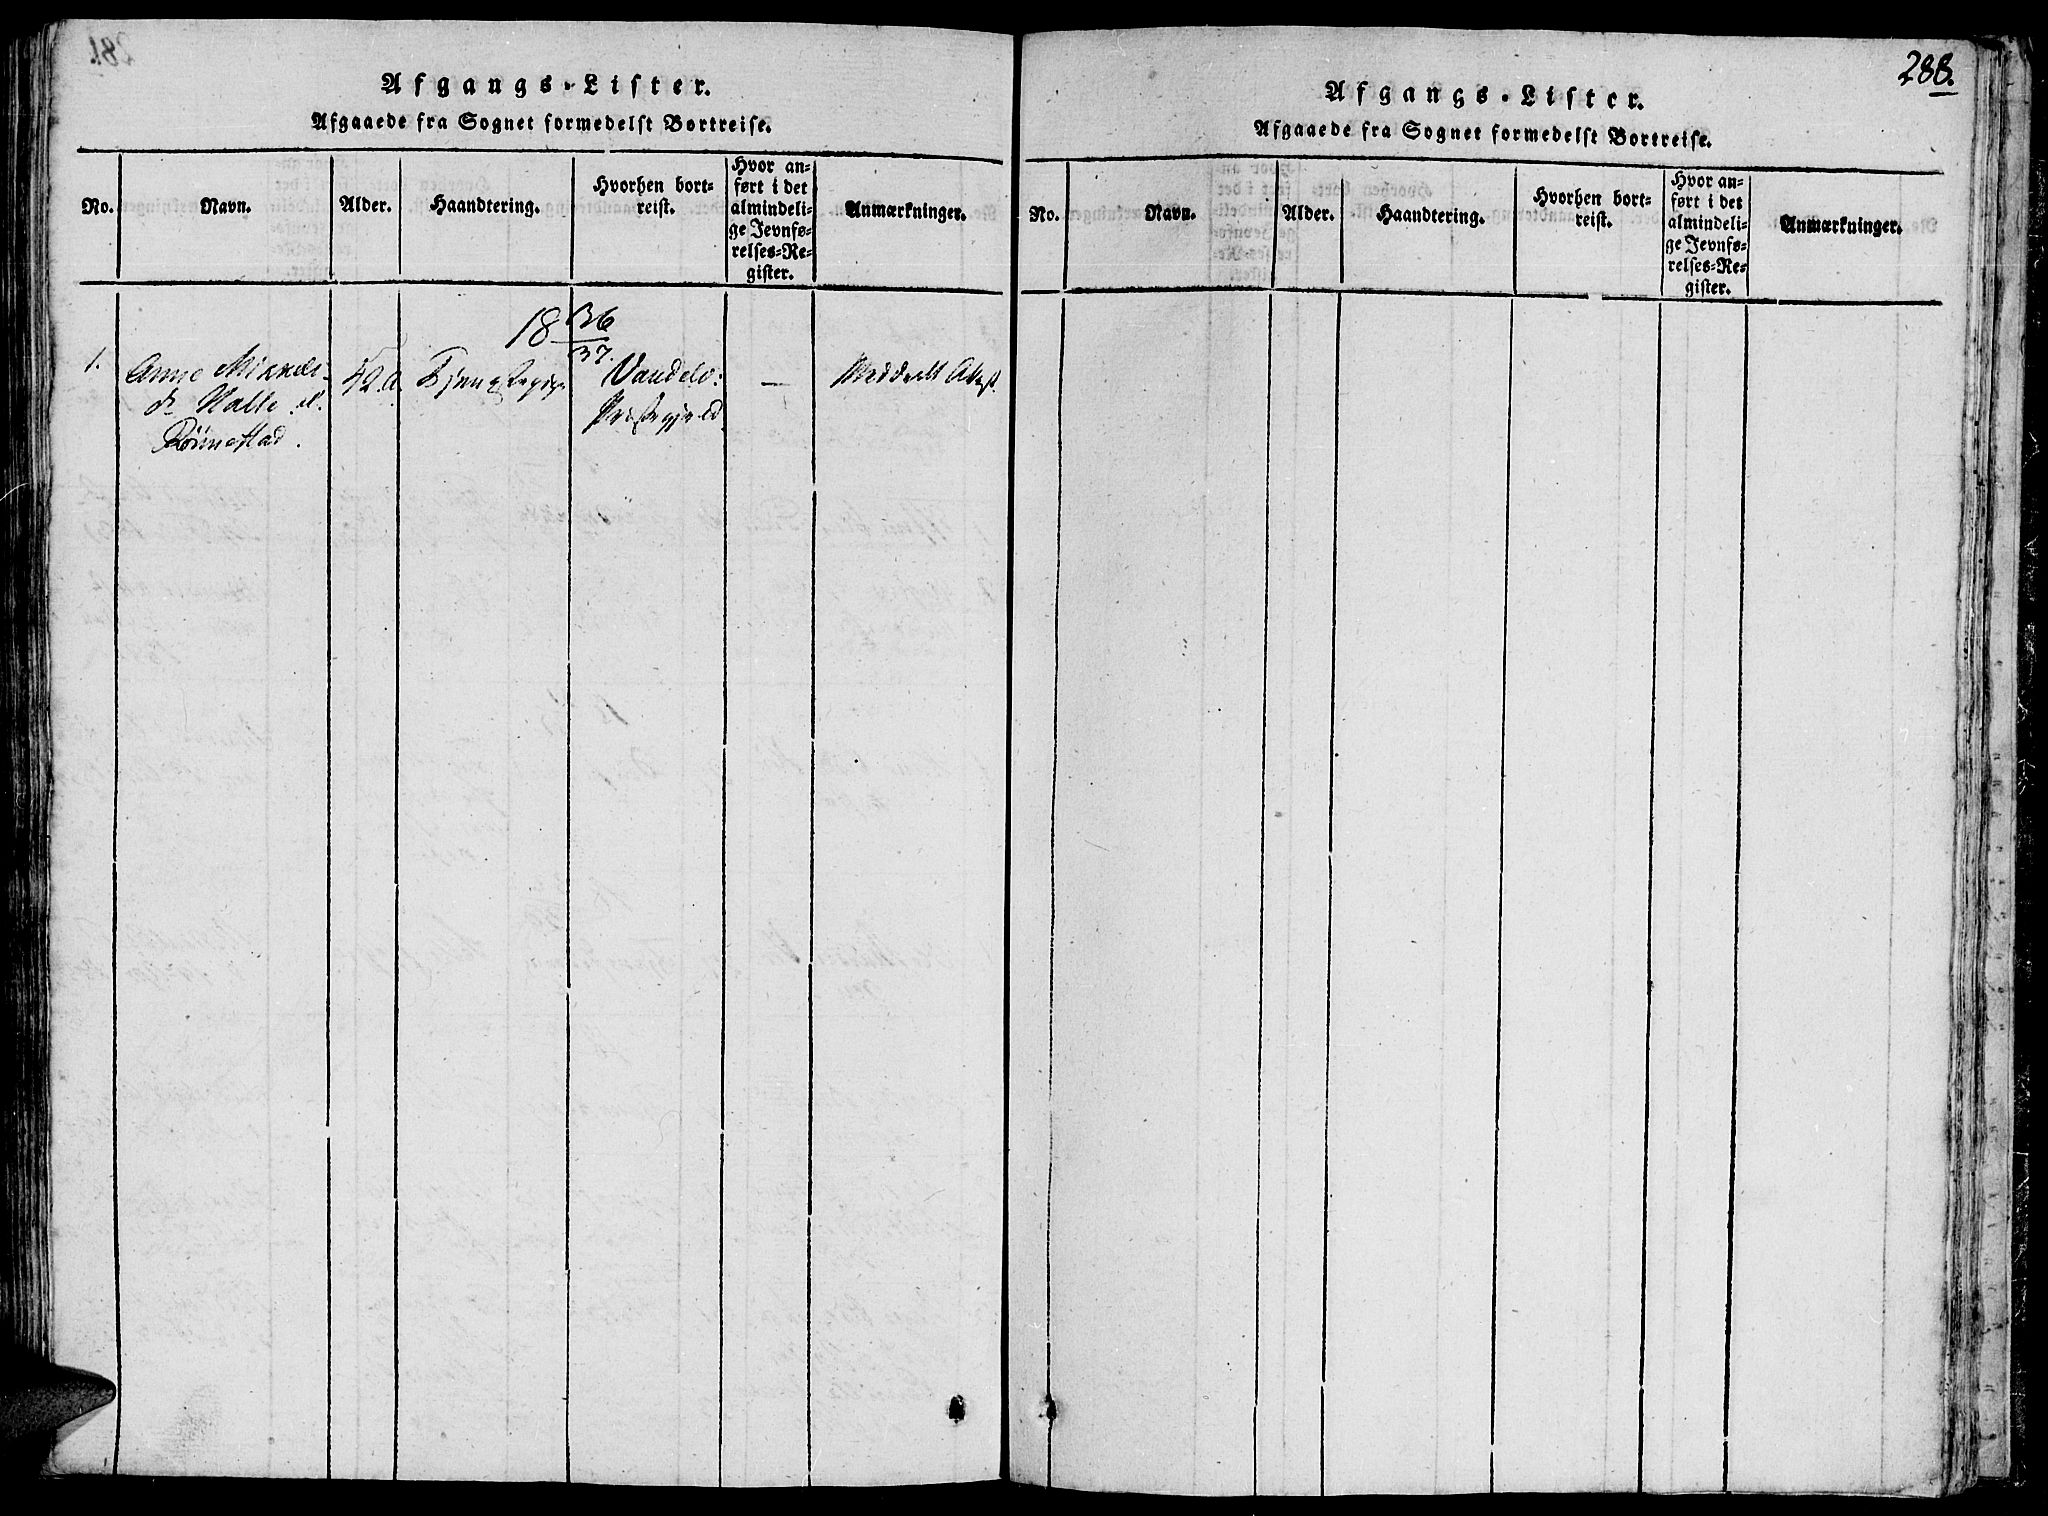 Afgangs-Lister.
Afgaaede fra Sognet formedelst Bortreise.
No.
Navn.
Alder.
Haandtering.
Hvorhen bort-
reist.
Hvor an-
ført i det
almindeli-
ge Jevnfø-
relses-Re-
gister.
Anmærkninger.
18 36/37.
1.
Anne Mikkels-
d. Halle
Rönnestad.
Tjenestepige
Vandelv:
Præstegjeld
—
Meddeelt Attest.
288.
Afgangs-Lister.
Afgaaede fra Sognet formedelst Bortreise.
No.
Navn.
Alder.
Haandtering.
Hvorhen bort-
reist.
Hvor an-
ført i det
almindeli-
ge Jevnfø-
relses-Re-
gister.
Anmærkninger.